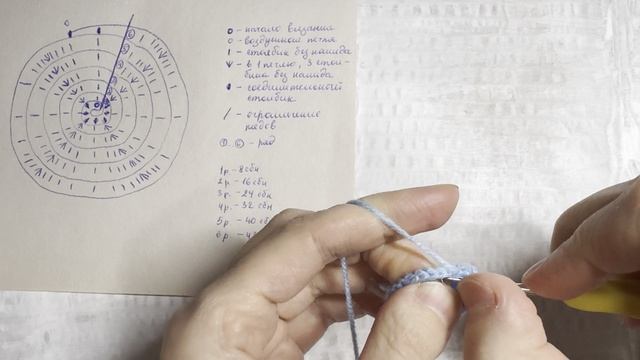 о - начало вязания
о - воздушная петля
ı - столбик без накида
- в 1 петлю, 3 стол-
бика без накида
- соединительный
столбик
/ - ограничение
рядов
①. ⑥ - ряд
1р. - 8 сбн
2р. - 16 сбн
3р. - 24 сбн
4р. - 32 сбн
5р. - 40 сб
6р. - 4